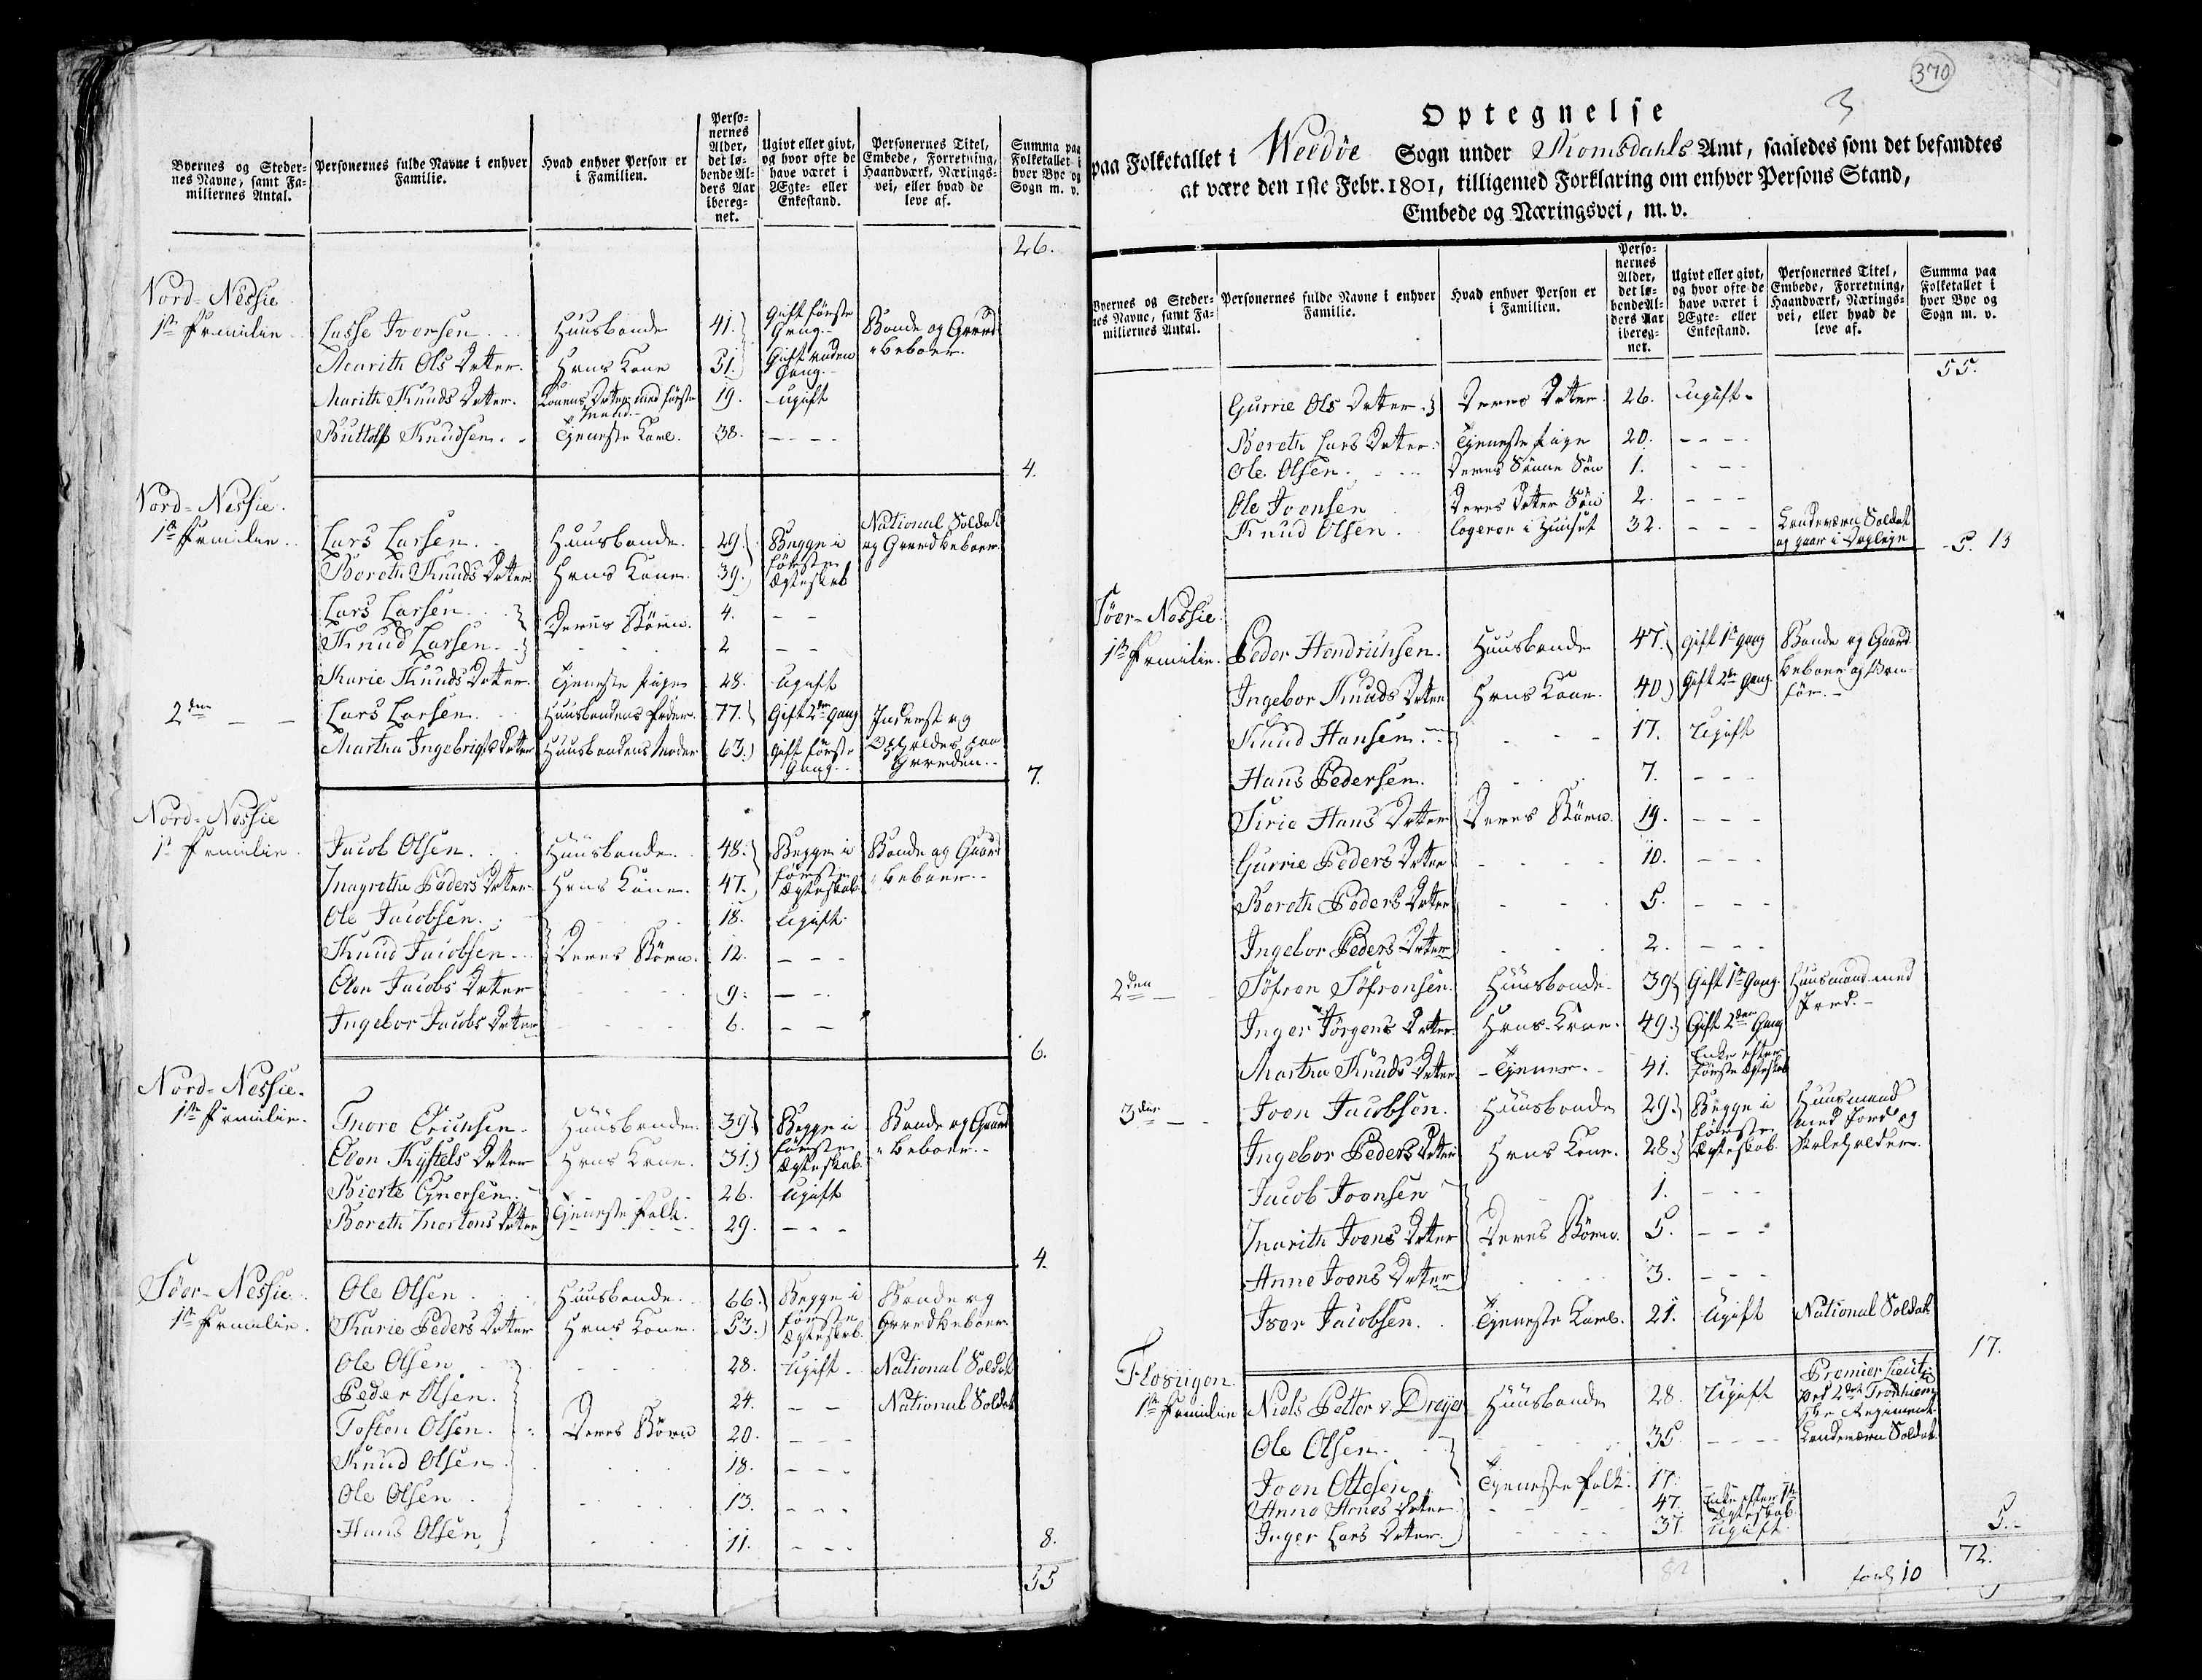 Byernes og Steder-
nes Navne, samt Fa-
miliernes Antal.
Personernes fulde Navne i enhver
Familie.
Hvad enhver Person er
i Familien.
Perso-
nernes
Alder,
det lø-
bende Al-
ders Aar
ibereg-
net.
Ugivt eller givt,
og hvor ofte de
have været i
Ægte- eller
Enkestand.
Personernes Titel,
Embede, Forretning,
Haandværk, Nærings-
vei, eller hvad de
leve af.
Summa paa
Folketallet i
hver Bye og
Sogn m. v.
26.
Nord-Nessie
1ste Familie Lasse Iversen Huusbonde 41. Gift første Gang Bonde og Gaard
Marith Ols Datter. Hans Kone 51. Gift anden Gang beboer.
Marith Knuds Datter. Konens Datter med første Mand 19. Ugift
Buttolf Knudsen Tjeneste Karl. 38. - - -
4.
Nord-Nessie.
1ste Familie Lars Larsen. Huusbonde. 29. Begge i National Soldat og Gaardbeboer
Bereth Knuds Datter Hans Kone. 39. første Ægteskab
Lars Larsen 4. - -
Knud Larsen. Deres Børn. 2 - -
Karie Knuds Datter. Tjeneste Pige 28. Ugift
2den - - Lars Larsen. Huusbondens Fader. 77. Gift 2den Gang Inderst og
Martha Ingebrigts Datter Huusbondens Moder 63. Gift første Gang. opholdes paa Gaarden.
7.
Nord-Nessie
1ste Familie Jacob Olsen. Huusbonde. 48. Begge i Bonde og Gaard
Magrethe Peders Datter Hans Kone. 47. første Ægteskab beboer.
Ole Jacobsen. 18. Ugift
Knud Jacobsen Deres Børn. 12. - - -
Elen Jacobs Datter 9. - -
Ingebor Jacobs Datter 6. - -
6.
Nord-Nessie.
1ste Familie. Thore Erichsen. Huusbonde. 39. Begge i Bonde og Gaard
Elen Kystels Datter Hans Kone. 31. første Ægteskab. beboer.
Bierte Ejnersen. 26. Ugift
Bereth Mortens Datter Tjeneste Folk. 29. - - -
4.
Søer-Nessie Ole Olsen Huusbonde. 66. Begge i Bonde og
1ste Familie. Karie Peders Datter Hans Kone. 53. første Ægteskab. Gaardbeboer.
Ole Olsen 28. Ugift. National Soldat
Peder Olsen. 24. - - National Soldat
Tosten Olsen. Deres Børn 20. - - -
Knud Olsen 18. - - -
Ole Olsen 13. - - -
Hans Olsen 11. - - - 8.
55
370
3
Optegnelse
paa Folketallet i Weedøe Sogn under Romsdahls Amt, saaledes som det befandtes
at være den 1ste Febr. 1801, tilligemed Forklaring om enhver Persons Stand,
Embede og Næringsvei, m. v.
Byernes og Steder-
nes Navne, samt Fa-
miliernes Antal.
Personernes fulde Navne i enhver
Familie.
Hvad enhver Person er
i Familien.
Perso-
nernes
Alder,
det lø-
bende Al-
ders Aar
ibereg-
net.
Ugivt eller givt,
og hvor ofte de
have været i
Ægte- eller
Enkestand.
Personernes Titel,
Embede, Forretning,
Haandværk, Nærings-
vei, eller hvad de
leve af.
Summa paa
Folketallet i
hver Bye og
Sogn m. v.
55.
Gurrie Ols Datter. Deres Datter 26. Ugift
Bereth Lars Datter. Tjeneste Pige 20. - - -
Ole Olsen. Deres Sønne Søn 1. - - -
Ole Joensen Deres Datter Søn 2. - - -
Knud Olsen. Logerer i Huuset 32. - - - Landeværn Soldat
og gaar i Dagleje
5. 13
Søer-Nessie
1ste Familie. Peder Hendrichsen. Huusbonde 47. Gift 1ste Gang Bonde og Gaard
Ingebor Knuds Datter Hans Kone. 40. Gift 2den Gang. beboer og
Knud Hansen. 17. Ugift
Hans Pedersen. 7. - - -
Sirie Hans Datter Deres Børn. 19. - - -
Gurrie Peders Datter 10. - - -
Bereth Peders Datter 5. - - -
Ingebor Peders Datter 2. - - -
2den - Søfren Søfrensen. Huusbonde 39. Gift 1ste Gang. Huusmand med
Inger Jørgens Datter Hans Kone. 49. Gift 2den Gang Jord.
Martha Knuds Datter - Tjener. 41. Enke efter første Ægteskab
3die - Joen Jacobsen. Huusbonde 29. Begge i Huusmand
Ingebor Peders Datter Hans Kone. 28. første Ægteskab. med Jord og
Skoleholder.
Jacob Joensen 1. - - -
Marith Joens Datter Deres Børn. 5. - - -
Anne Joens Datter 3. - - -
Iver Jacobsen. Tjeneste Karl. 21. Ugift National Soldat
17.
Flovigen
1ste Familie Niels Petter v Dreyer Huusbonde 28. Ugift Premier Lieut:
ved 2det Tronhiem
ske Regiment
Ole Olsen. 35. - - - Landeværn Soldat.
Joen Ottesen Tjeneste Folk. 17.
Anne Arnes Datter 47. Enke efter 1ste Ægteskab.
Inger Lars Datter. 37. Ugift. 5.-
72.
10